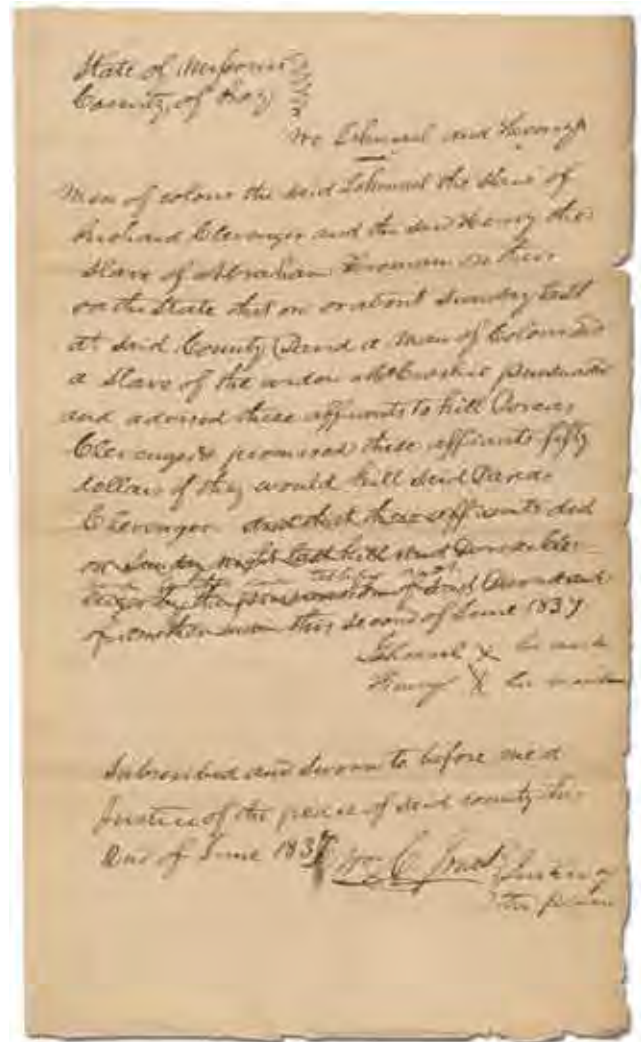 State of Missouri
County of Ray
We Ishmael and Henry
Men of colour the said Ishmael the slave of
Richard Clevenger and the said Henry the
slave of Abraham on their
oaths State that on or about Sunday last
at said County David a man of Colour
a Slave of the widow persuaded
and advised these affiants to kill
Clevenger & promised these affiants fifty
dollars if they would kill said
Clevenger and that these affiants did
on Sunday night last kill said Cle-
venger by the persuasion of said David and
sworn this second of June 1837
Ishmael X his mark
Henry X his mark
Subscribed and Sworn to before me a
Justice of the peace of said county this
2nd of June 1837 Wm C Justice of
the peace